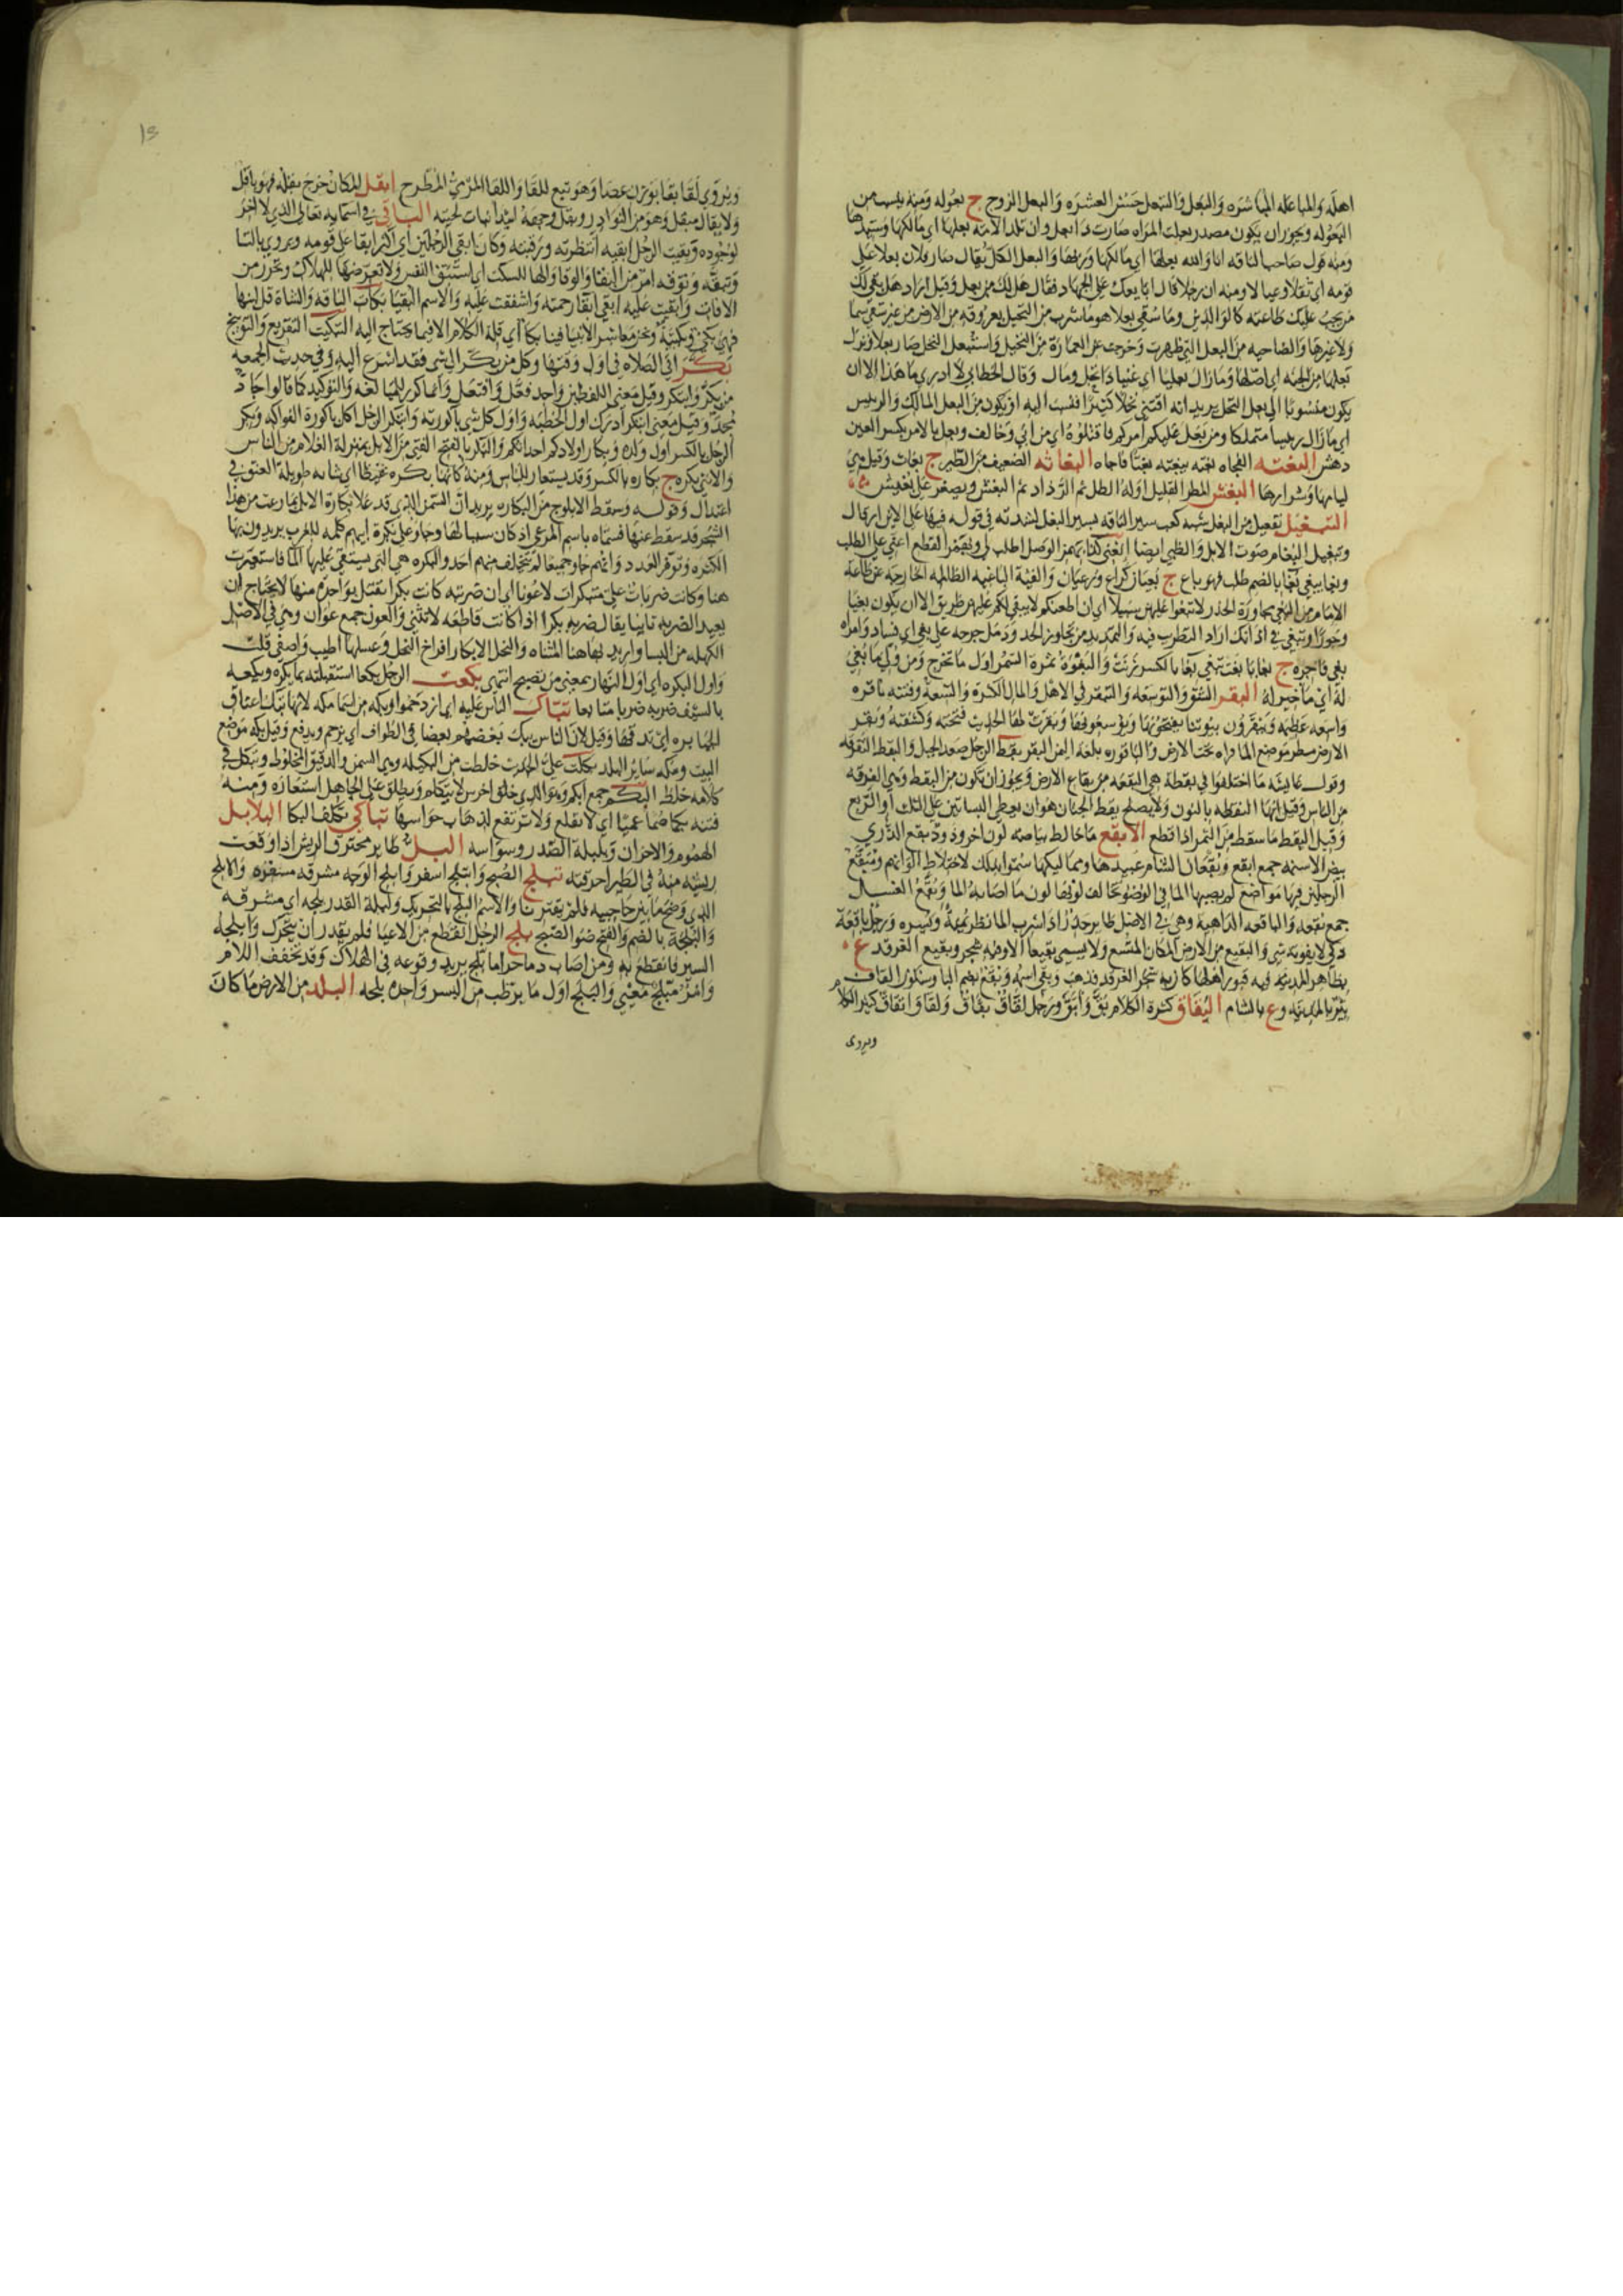 اهله والمباعله المباشره والبعل والتبعل حسن العشره والبعل الزوج ج بعوله ومنه
البعوله ويجوز ان يكون مصدر بعلت المراه صارت ذا بعل وان تلد الامه بعلها اي مالكها
ومنه قول صاحب الناقه انا والله بعلها اي مالكها وربها والبعل الكل يقال صار فلان بعلا علي
قومه اي ثقلا وعيالا ومنه ان رجلا قال ابايعك علي الجهاد فقال هل لك من بعل وقيل اراد هل بقي لك
من يجب عليك طاعته كالوالدين وما سقي بعلا هو ما شرب من النخيل بعروقه من الارض من غير سقي سما
ولا غيرها والضاحيه من البعل التي ظهرت وخرجت عن العماره من النخيل واستبعل النخل صار بعلا
اي اصلها وما زال بعليا اي غنيا ذا نخل ومال وقال الخطابي لا ادري ما هذا الا ان
يكون منسوبا الي بعل النخل يريد انه اقتني نخلا كثيرا فنسب اليه او يكون من البعل المالك والرييس
اي ما زال رييسا متملكا ومن بعل عليكم امركم فاقتلوه اي من ابي وخالف وبعل بالامر بكسر العين
دهش البغته الفجاه بغته يبغته بغتا فاجاه البغاثه الضعيف من الطير ج بغاث وقيل هي
ليامها وشرارها البغش المطر القليل اوله الطل ثم الرذاذ ثم البغش ويصغر علي بغيش
التبغيل تفعيل من البغل شبه كعب سير الناقه بسير البغل لشدته في قوله فيها علي الاين ارقال
وتبغيل البغام صوت الابل والظبي ايضا ابغني كذا بهمز الوصل اطلب لي وبهمز القطع اعني علي الطلب
وبغا يبغي بغا بالضم طلب فهو باغ ج بغيان كراع ورعيان والفئة الباغيه الظالمه الخارجه عن طاعه
الامام من البغي مجاوزة الحد فلا تبغوا عليهن سبيلا اي ان اطعنكم لا يبقي لكم عليهن طريق الا ان يكون بغيا
وجورا وتبغي في اذانك اراد التطريب فيه والتمديد من تجاوز الحد ودمل جرحه علي بغي اي فساد وامراه
بغي فاجره ج بغايا بغت تبغي بغا بالكسر زنت والبغوة ثمرة السمر اول ما تخرج
له اي ما خير له البقر الشق والتوسعه والتبقر في الاهل والمال الكثره والسعة وفتنه باقره
واسعه عظيمه ويبقرون بيوتنا يفتحونها ويوسعونها وبقرت لها الحديث فتحته وكشفته وبقر
الارض نظر موضع الما فراه تحت الارض والباقوره بلغه اليمن البقر بقط الرجل صعد الجبل والبقط التفرقه
وقول عايشه ما اختلفوا في بقطة هي البقعه من بقاع الارض ويجوز ان تكون من البقط وهي الفرقه
من الناس وقيل انها النقطه بالنون ولا يصلح بقط الجنان هو ان يعطي البساتين علي الثلث او الربع
وقيل البقط ما سقط من التمر اذا قطع الابقع ما خالط بياضه لون اخر وذود بقع الذري
بيض الاسنمه جمع ابقع وبقعان الشام عبيدها ومماليكها سموا بذلك لاختلاط الوانهم ومبقع
الرجلين فيها مواضع لم يصبها الما في الوضوء تخالف لونها لون ما اصابه الما وبقع الغسل
جمع بقعه والباقعه الداهيه وهي في الاصل طاير حذر اذا شرب الما نظر يمنة ويسره ورجل باقعة
ذكي لا يفوته شي والبقيع من الارض المكان المتسع ولا يسمي بقيعا الا وفيه شجر وبقيع الغرقد ع
بظاهر المدينه فيه قبور اهلها كان به شجر الغرقد فذهب وبقي اسمه وبقع بضم البا وسكون القاف
بئر بالمدينه وع بالشام البقاق كثرة الكلام بق وابق ورجل لقاق بقاق ولقا بقا كثير الكلام
ويروي
13
ويروي لقا بقا بوزن عصا وهو تبع للقا واللقا المرمي المطرح ابقل المكان خرج بقله فهو باقل
ولا يقال مبقل وهو من النوادر وبقل وجهه ابتدا نبات لحيته الباقي في اسمايه تعالي الذي لا اخر
لوجوده وبقيت الرجل ابقيه انتظرته ورقبته وكان ابقي الرجلين اي اكثر ابقا علي قومه ويروي بالتا
وتبقه وتوقه امر من البقا والوقا والها للسكت اي استبق النفس ولا تعرضها للهلاك وتحرز من
الافات وابقيت عليه ابقي ابقا رحمته واشفقت عليه والاسم البقيا بكات الناقه والشاة قل لبنها
فهي بكي وبكيئة ونحن معاشر الانبيا فينا بكا اي قلة الكلام الا فيما يحتاج اليه التبكيت التقريع والتوبيخ
بكر اتي الصلاه في اول وقتها وكل من بكر الي شي فقد اسرع اليه وفي حديث الجمعه
من بكر وابتكر وقيل معني اللفظين واحد فعل وافتعل وانما كرر للمبالغه والتوكيد كما قالوا جاد
مجد وقيل معني ابتكر ادرك اول الخطبه واول كل شي باكورته وابتكر الرجل اكل باكورة الفواكه وبكر
الرجل بالكسر اول ولده وبكار اولادكم احداثكم والبكر بالفتح الفتي من الابل بمنزلة الغلام من الناس
والانثي بكره ج بكاره بالكسر وقد يستعار للناس ومنه كانها بكره عيطا اي شابه طويلة العنق في
اعتدال وقوله وسقط الاملوج من البكاره يريد ان السمن الذي قد علا بكارة الابل بما رعت من هذا
الشجر قد سقط عنها فسماه باسم المرعي اذ كان سببا لها وجاوا علي بكرة ابيهم كلمه للعرب يريدون بها
الكثره وتوفر العدد وانهم جاوا جميعا لم يتخلف منهم احد والبكره هي التي يستقي عليها الما فاستعيرت
هنا وكانت ضربات علي مبتكرات لا عونا اي ان ضربته كانت بكرا تقتل بواحدة منها لا يحتاج ان
يعيد الضربه ثانيا يقال ضربه بكر اذا كانت قاطعه لا تثني والعون جمع عوان وهي في الاصل
الكهله من النسا واريد بها هنا المثناه والنحل الابكار افراخ النحل وعسلها اطيب واصفي قلت
واول البكره اي اول النهار بمعني من تصبح انتهي بكعت الرجل بكعا استقبلته بما يكره وبكعه
بالسيف ضربه ضربا متتابعا تباك الناس عليه اي ازدحموا وبكه من اسما مكه لانها تبك اعناق
الجبابره اي تدقها وقيل لان الناس يبك بعضهم بعضا في الطواف اي يزحم ويدفع وقيل بكه موضع
البيت ومكه ساير البلد بكلت علي الحديث خلطت من البكيله وهي السمن والدقيق المخلوط وتبكل في
كلامه خلط البكم جمع ابكم وهو الذي خلق اخرس لا يتكلم ويطلق علي الجاهل استعاره ومنه
فتنه بكما صما عميا اي لا تقلع ولا ترتفع لذهاب حواسها تباكي تكلف البكا البلابل
الهموم والاحزان وبلبلة الصدر وسواسه البلت طاير محترق الريش اذا وقعت
ريشه منه في الطير احرقته تبلج الصبح وابتلج اسفر وابلج الوجه مشرقه مسفره والابلج
الذي وضح ما بين حاجبيه فلم يقترنا والاسم البلج بالتحريك وليلة القدر بلجه اي مشرقه
والبلجة بالضم والفتح ضو الصبح بلح الرجل انقطع من الاعيا فلم يقدر ان يتحرك وابلحه
السير فانقطع به ومن اصاب دما حراما بلح يريد وقوعه في الهلاك وقد تخفف اللام
وامر مبلح معيي والبلح اول ما يرطب من البسر واحده بلحه البلد من الارض ما كان